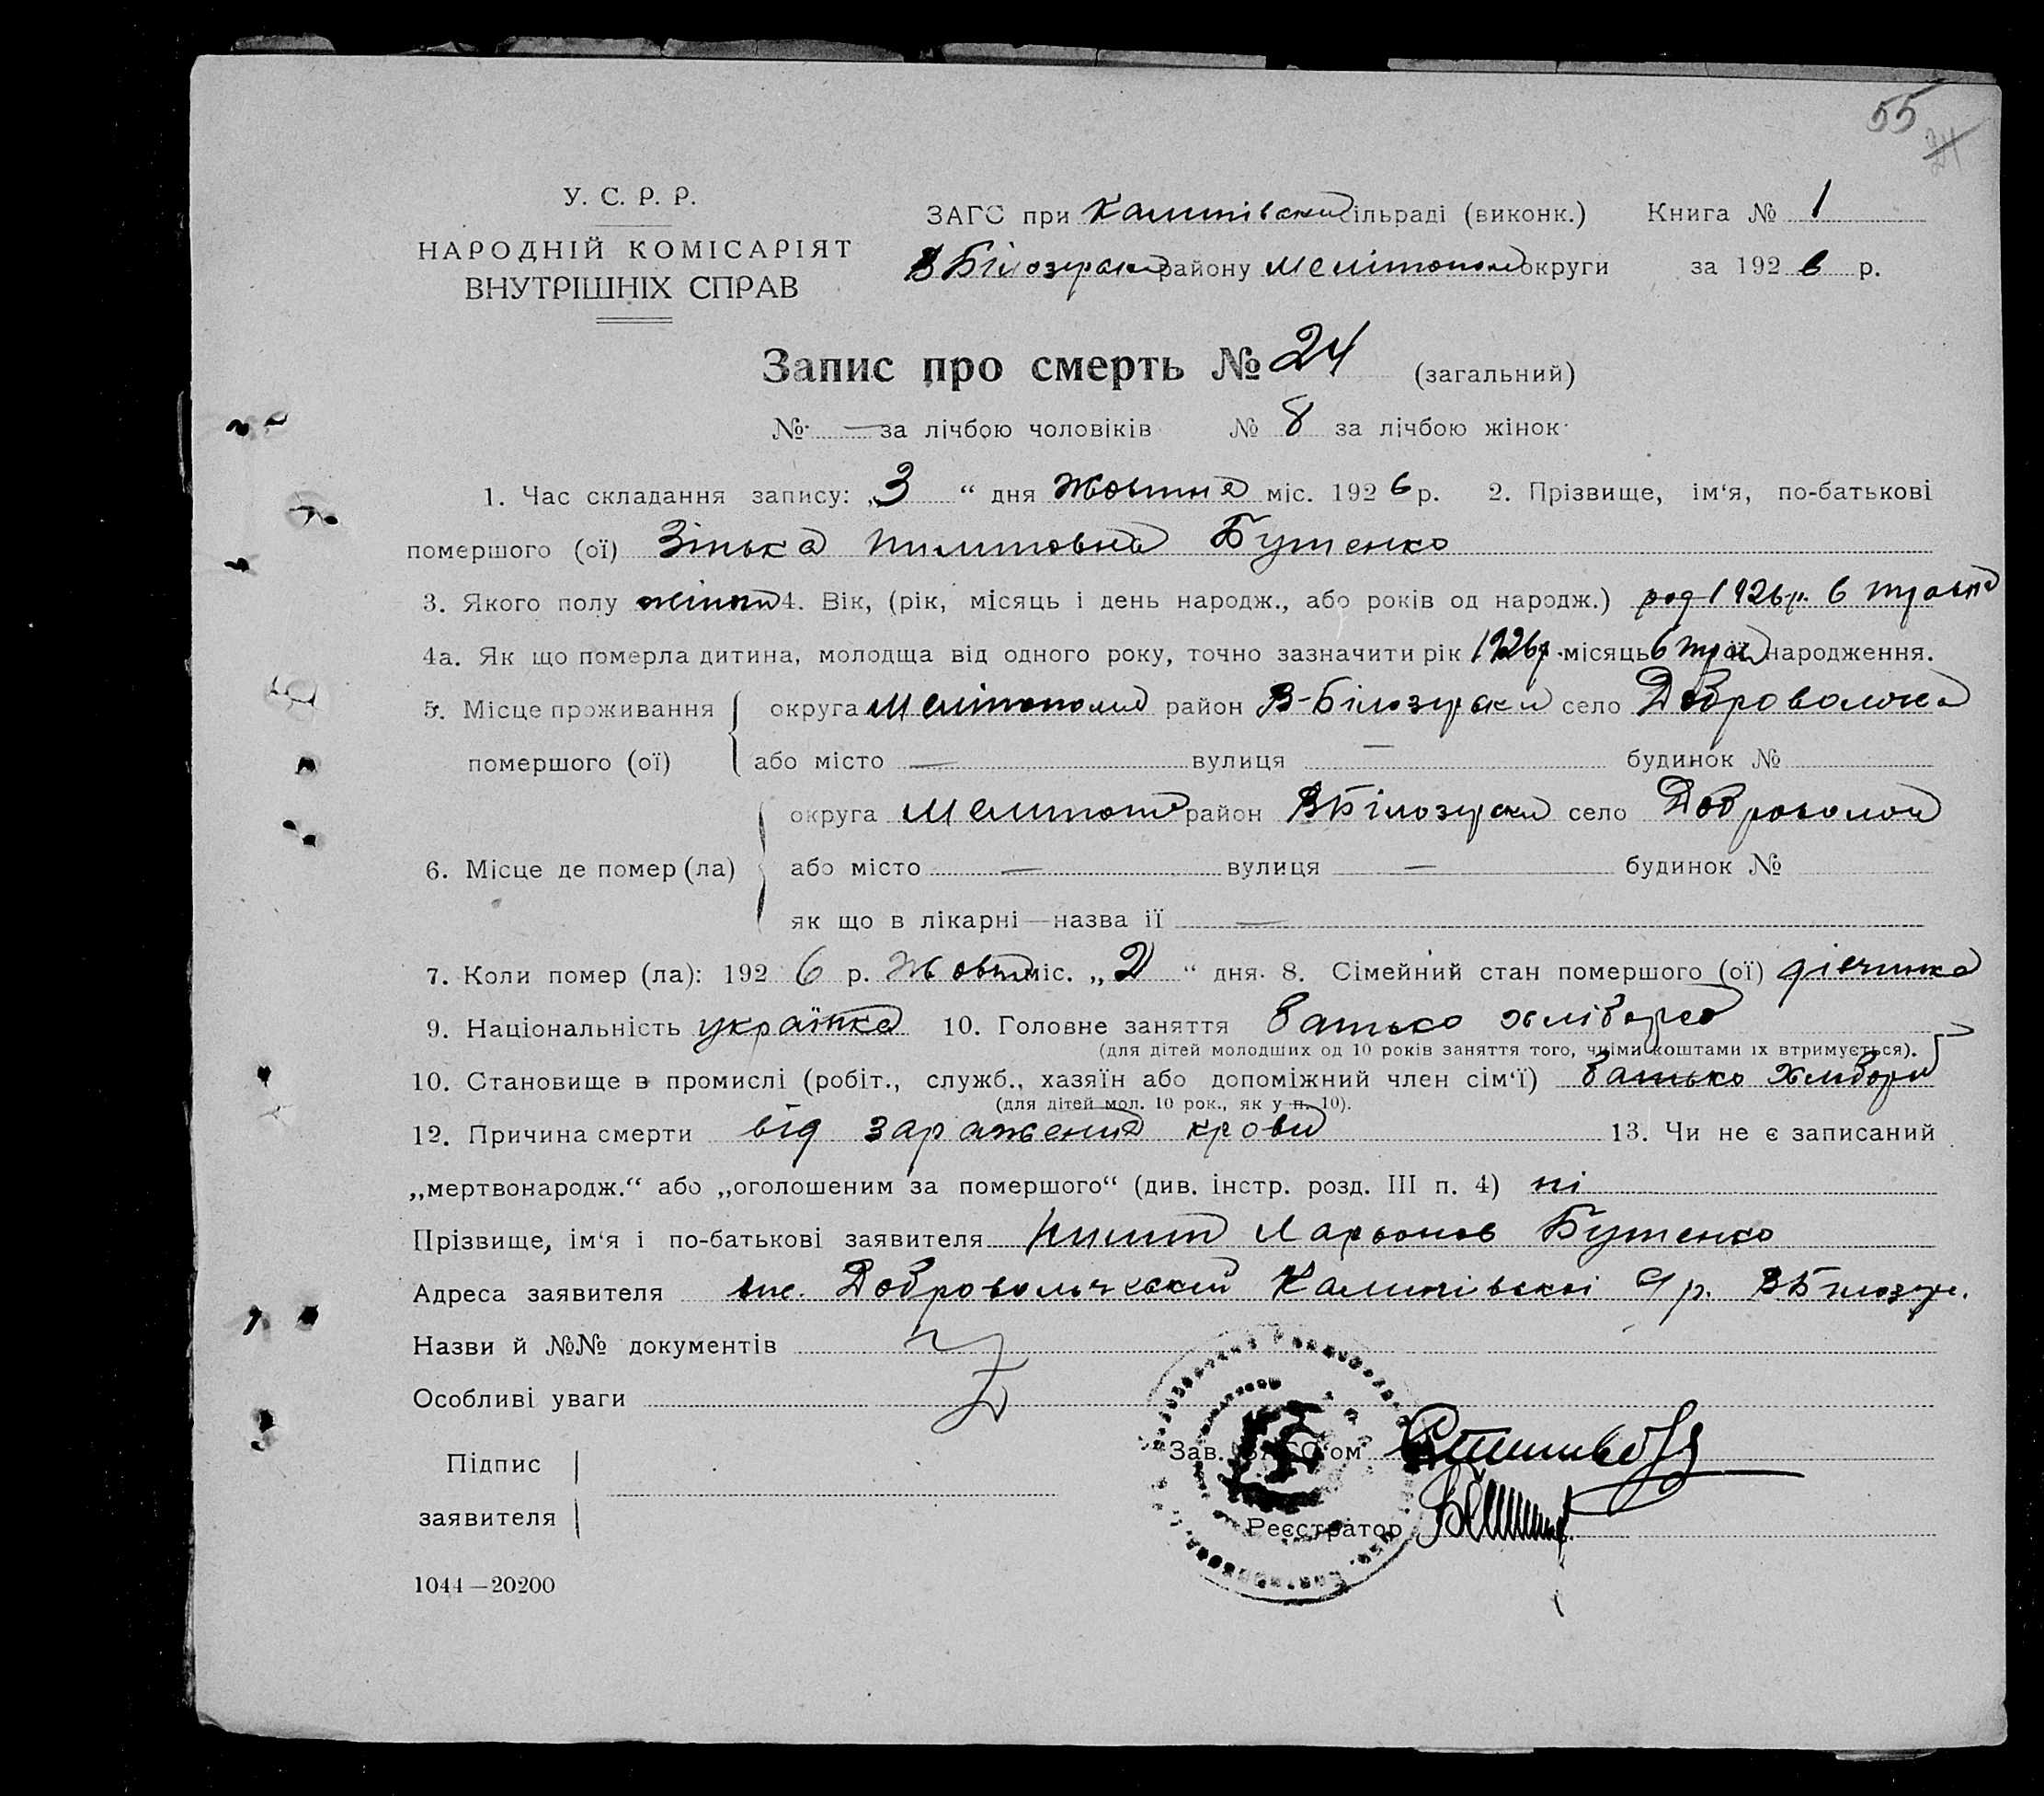 55
24
У. С. Р. Р.
НАРОДНІЙ КОМІСАРІЯТ
ВНУТРІШНІХ СПРАВ
ЗАГС при Калинівський сільраді (виконк.) Книга № 1
В Білозерський району Мелітополь округи за 1926 р.
Запис про смерть № 24 (загальний)
№ — за лічбою чоловіків № 8 за лічбою жінок
1. Час складання запису: „3“ дня Жовтня міс. 1926 р. 2. Прізвище, ім‘я, по-батькові
помершого (ої) Зінька Пилиповна Бутенко
3. Якого полу 4. Вік, (рік, місяць і день народж., або років од народж.) род 1926 р. 6 травня
4а. Як що померла дитина, молодща від одного року, точно зазначити рік 1926 р. місяць 6 народження.
5. Місце проживання округа район В-Білозерськ село Доброволочка
помершого (ої) або місто — вулиця — будинок №
округа район ВБілозерськ село
6. Місце де помер (ла) або місто — вулиця — будинок №
як що в лікарні—назва ії —
7. Коли помер (ла): 1926 р. Жовтн міс. „2“ дня. 8. Сімейний стан помершого (ої) дівчинка
9. Національність українка 10. Головне заняття батько хлібороб
(для дітей молодших од 10 років заняття того, чиїми коштами їх втримується).
10. Становище в промислі (робіт., служб., хазяїн або допоміжний член сім‘ї) батько хлібороб
(для дітей мол. 10 рок., як у п. 10).
12. Причина смерти від зараженія крови 13. Чи не є записаний
„мертвонародж.“ або „оголошеним за помершого“ (див. інстр. розд. III п. 4) ні
Прізвище, ім‘я і по-батькові заявителя Пилип Ларіонов Бутенко
Адреса заявителя Калинівської с/р. ВБілозер.
Назви й №№ документів
Особливі уваги
Зав. ЗАГС‘ом
Підпис
заявителя
Реєстратор
1044—20200